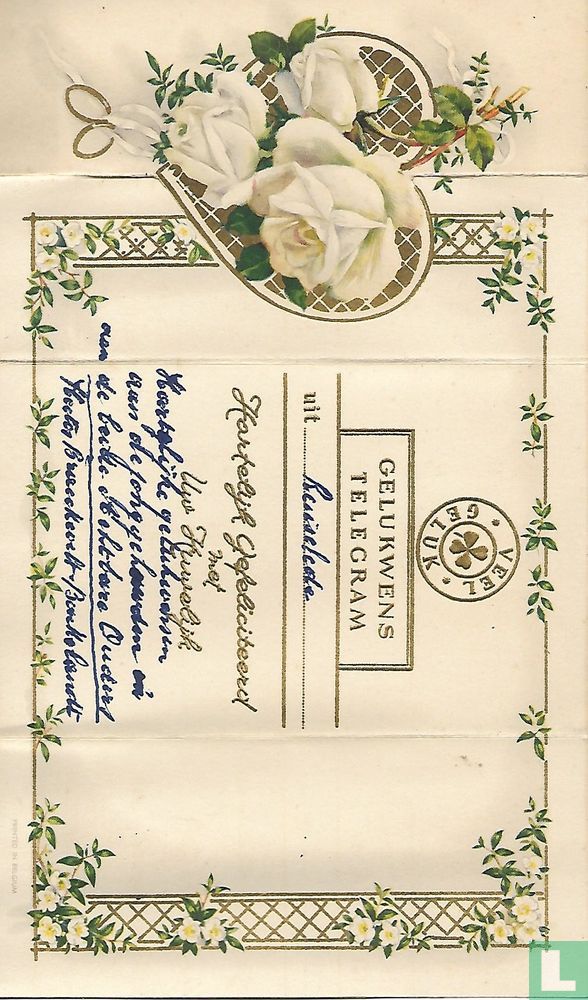 VEEL
GELUK
GELUKWENS
TELEGRAM
uit
Hartelijk Gefeliciteerd
met
Uw Huwelijk
Hartelijke gelukwensen
aan de jonggehuwden en
aan de beide Achtbare Ouders
PRINTED IN BELGIUM
L